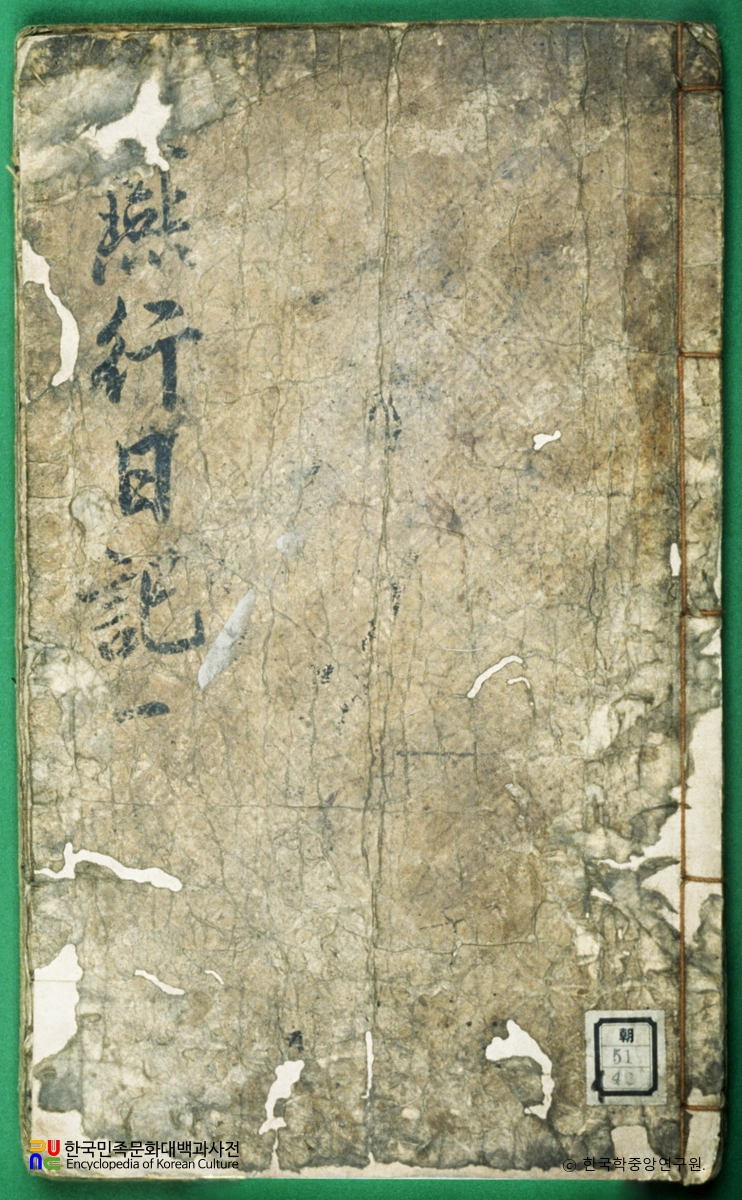 燕行日記 一
朝
51
42
한국민족문화대백과사전
Encyclopedia of Korean Culture
© 한국학중앙연구원.